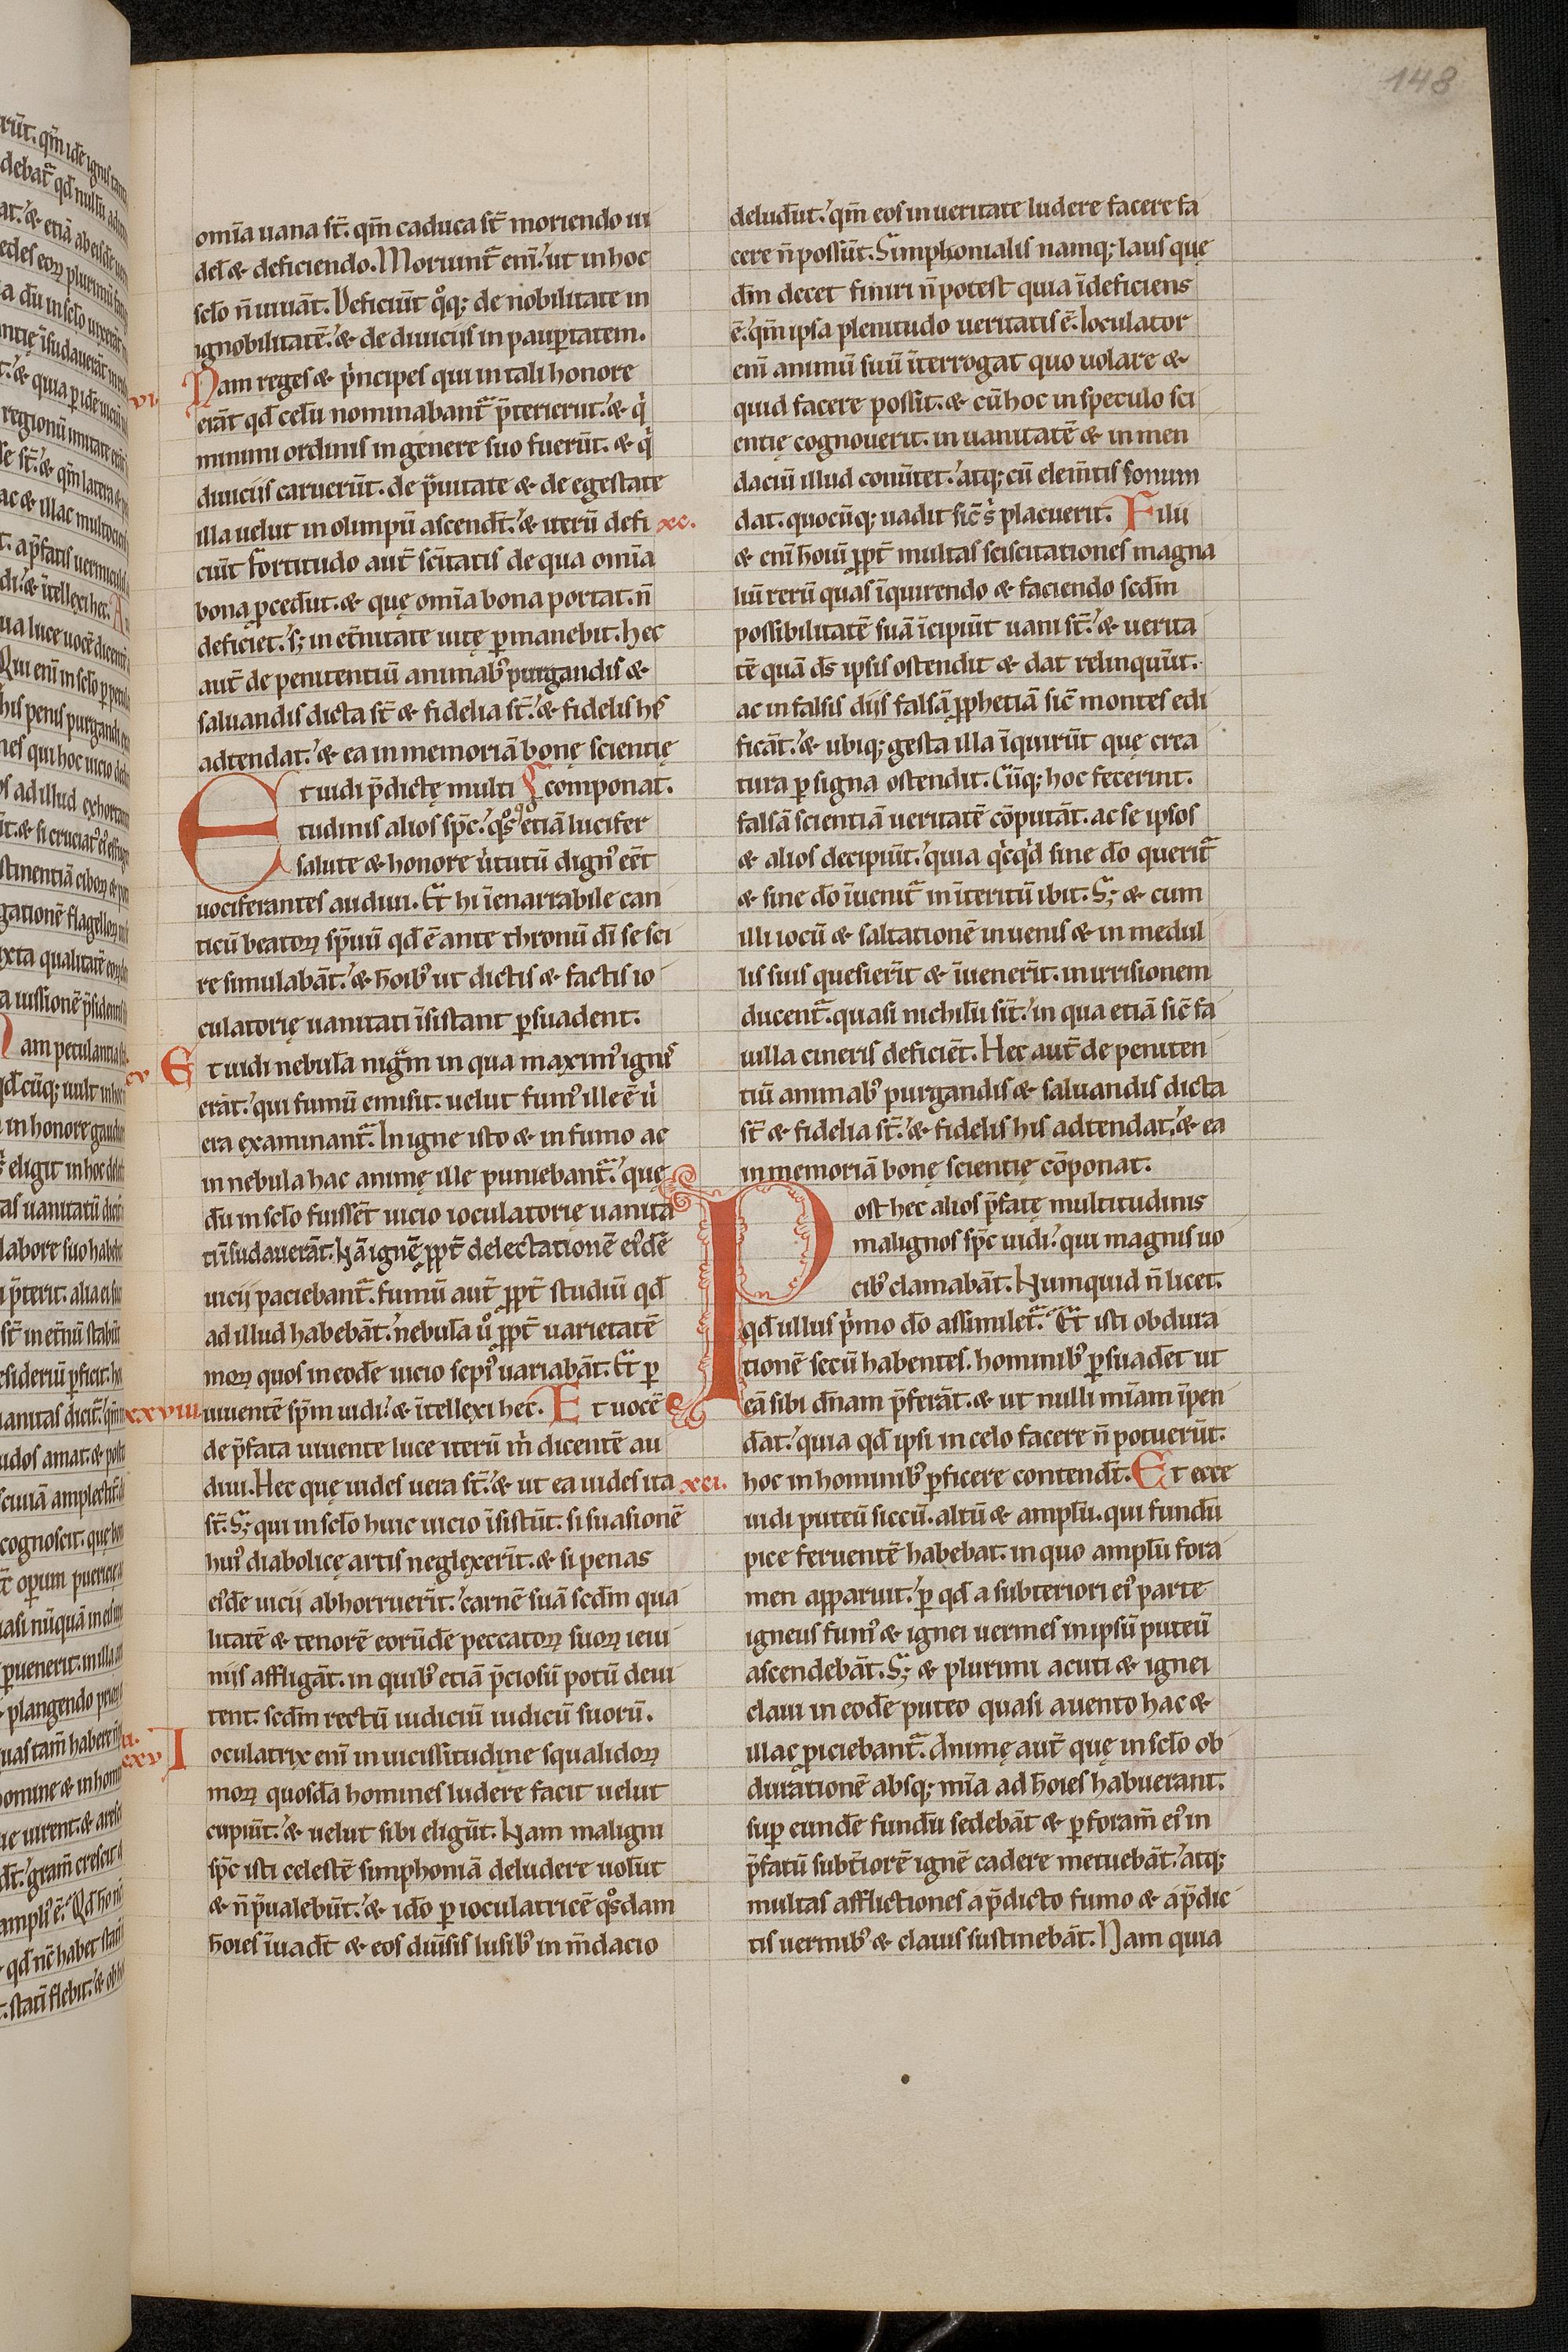 148
omīa uana st̄. qm̄ caduca st̄ moriendo ui
del̄ & deficiendo. Moriunt᷑ enī. ut in hoc
scl̄o n̄ uiuāt. Deficiūt q̊q; de nobilitate in
ignobilitatē. & de diuiciis in paup̄tatem.
Nam reges & p̓ncipes qui in tali honore
erāt qd̄ celū nominabant᷑ p̄terierūt. & q̓
minimi ordinis in genere suo fuerūt. & q̓
diuiciis caruerūt. de p̄uitate & de egestate
illa uelut in olimpū ascendt̄. & iterū defi xc.
ciūt fortitudo aut̄ sc̄itatis de qua omīa
bona p̱cedūt. & quę omīa bona portat. n̄
deficiet. s; in et̄nitate uitę p̱manebit. hec
aut̄ de penitentiū animabꝰ purgandis &
saluandis dicta st̄ & fidelia st̄. & fidelis hꝰ
adtendat. & ea in memoriā bonę scientię
Et uidi p̄dictę multi componat.
tudinis alios sp̄c. q̊s etiā lucifer
salute & honore u̓tutū dignꝰ eēt
uociferantes audiui. Et̄ hi īenarrabile can
ticū beatoꝝ sp̄uū qd̄ ē ante thronū dī se sci
re simulabāt. & hoībꝰ ut dictis & factis io
culatorię uanitati īsistant p̱suadent.
Et uidi nebulā nig᷑m in qua maximꝰ ignis
erāt. qui fumū emisit. uelut fumꝰ ille ē u̓
era examinant᷑. In igne isto & in fumo ac
in nebula hac animę ille puniebant᷑. quę
dū in scl̄o fuissēt uicio ioculatorię uanita
tū īsudauerāt. Nā ignē ꝓpt̄ delectationē eꝰdē
uicii paciebant᷑. fumū aut̄ ꝓpt̄ studiū qd̄
ad illud habebāt. nebulā ů ꝓpt̄ uarietatē
moꝝ quos in eodē uicio sepiꝰ uariabāt. Et̄ p̱
xxviii uiuentē sp̄m uidi. & ītellexi hec. Et uocē
de p̄fata uiuente luce iterū m̓ dicentē au
diui. Hec quę uides uera st̄. & ut ea uides ita
st̄. S; qui in scl̄o huic uicio īsistūt. si suasionē
huiꝰ diabolicę artis neglexerīt. & si penas
eꝰdē uicii abhorruerīt. carnē suā scd̄m qua
litatē & tenorē eorūdē peccatoꝝ suoꝝ ieiu
niis affligāt. in quibꝰ etiā p̄ciosū potū deui
tent. scd̄m rectū iudiciū iudicū suorū.
Ioculatrix enī in uicissitudine squalidoꝝ
moꝝ quosdā homines ludere facit uelut
cupiūt. & uelut sibi eligūt. Nam maligni
sp̄c isti celestē simphoniā deludere uolūt
& n̄ p̄ualebūt. & idō p̱ ioculatricē q̊sdam
hoīes īuadt̄ & eos diūsis lusibꝰ in m̄dacio
deludūt. qm̄ eos in ueritate ludere facere fa
cere n̄ possūt. Simphonialis namq; laus quę
dm̄ decet finiri n̄ potest quia īdeficiens
ē. qm̄ ipsa plenitudo ueritatis ē. Ioculator
enī animū suū īterrogat quo uolare &
quid facere possit. & cū hoc in speculo sci
entię cognouerit. in uanitatē & in men
daciū illud conūtet. atq; cū elem̄tis sonum
dat. quocūq; uadit sic̄ s̓ placuerit. Filii
& enī hoīū ꝓpt̄ multas sciscitationes magna
liū rerū quas īquirendo & faciendo scd̄m
possibilitatē suā īcipiūt uani st̄. & uerita
tē quā ds̄ ipsis ostendit & dat relinquūt.
ac in falsis diis falsā ꝓphetiā sic̄ montes edi
ficāt. & ubiq; gesta illa īquirūt quę crea
tura p̱ signa ostendit. Cūq; hoc fecerint.
falsā scientiā ueritatē cōputāt. ac se ipsos
& alios decipiūt. quia q̓cq̓d sine dō querit᷑
& sine dō īuenit᷑ in īteritū ibit. S; & cum
illi iocū & saltationē in uenis & in medul
lis suis quesierīt & īuenerīt. in irrisionem
ducent᷑. quasi nichilū sīt. in qua etiā sic̄ fa
uilla cineris deficiēt. Hec aut̄ de peniten
tiū animabꝰ purgandis & saluandis dicta
st̄ & fidelia st̄. & fidelis his adtendat. & ea
in memoriā bonę scientię cōponat.
Post hec alios p̄fatę multitudinis
malignos sp̄c uidi. qui magnis uo
cibꝰ clamabāt. Numquid n̄ licet.
qd̄ ullus p̓mo dō assimilet᷑. Et̄ isti obdura
tionē secū habentes. hominibꝰ p̱suadēt ut
eā sibi dn̄am p̄ferāt. & ut nulli mīam īpen
dāt. quia qd̄ ipsi in celo facere n̄ potuerūt.
xci. hoc in hominibꝰ p̱ficere contendt̄. Et ecce
uidi puteū siccū. altū & amplū. qui fundū
pice feruentē habebat. in quo amplū fora
men apparuit. p̱ qd̄ a subteriori eiꝰ parte
igneus fumꝰ & ignei uermes in ipsū puteū
ascendebāt. S; & plurimi acuti & ignei
claui in eodē puteo quasi a uento hac &
illac p̱iciebant᷑. Animę aut̄ quę in scl̄o ob
durationē absq; mīa ad hoīes habuerant.
sup̱ eundē fundū sedebāt & p̱ foram̄ eiꝰ in
p̄fatū subt̄iorē ignē cadere metuebāt. atq;
multas afflictiones a p̄dicto fumo & a p̄dic
tis uermibꝰ & clauis sustinebāt. Nam quia